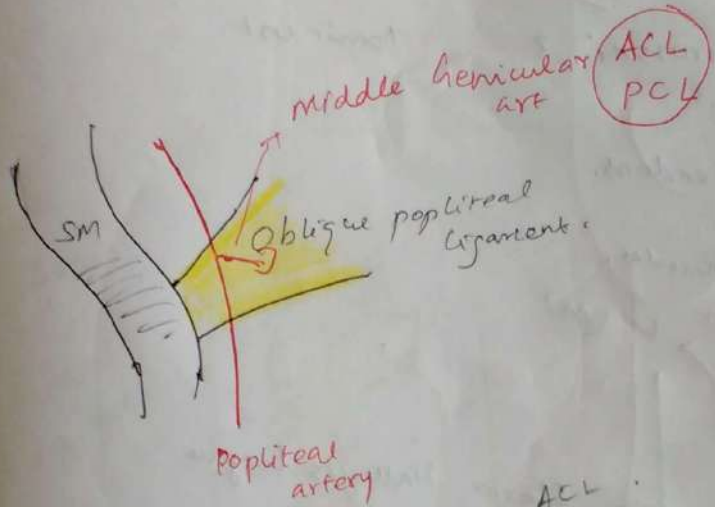 Middle Genicular
art
ACL
PCL
SM
Oblique popliteal
ligament.
popliteal
artery
ACL.